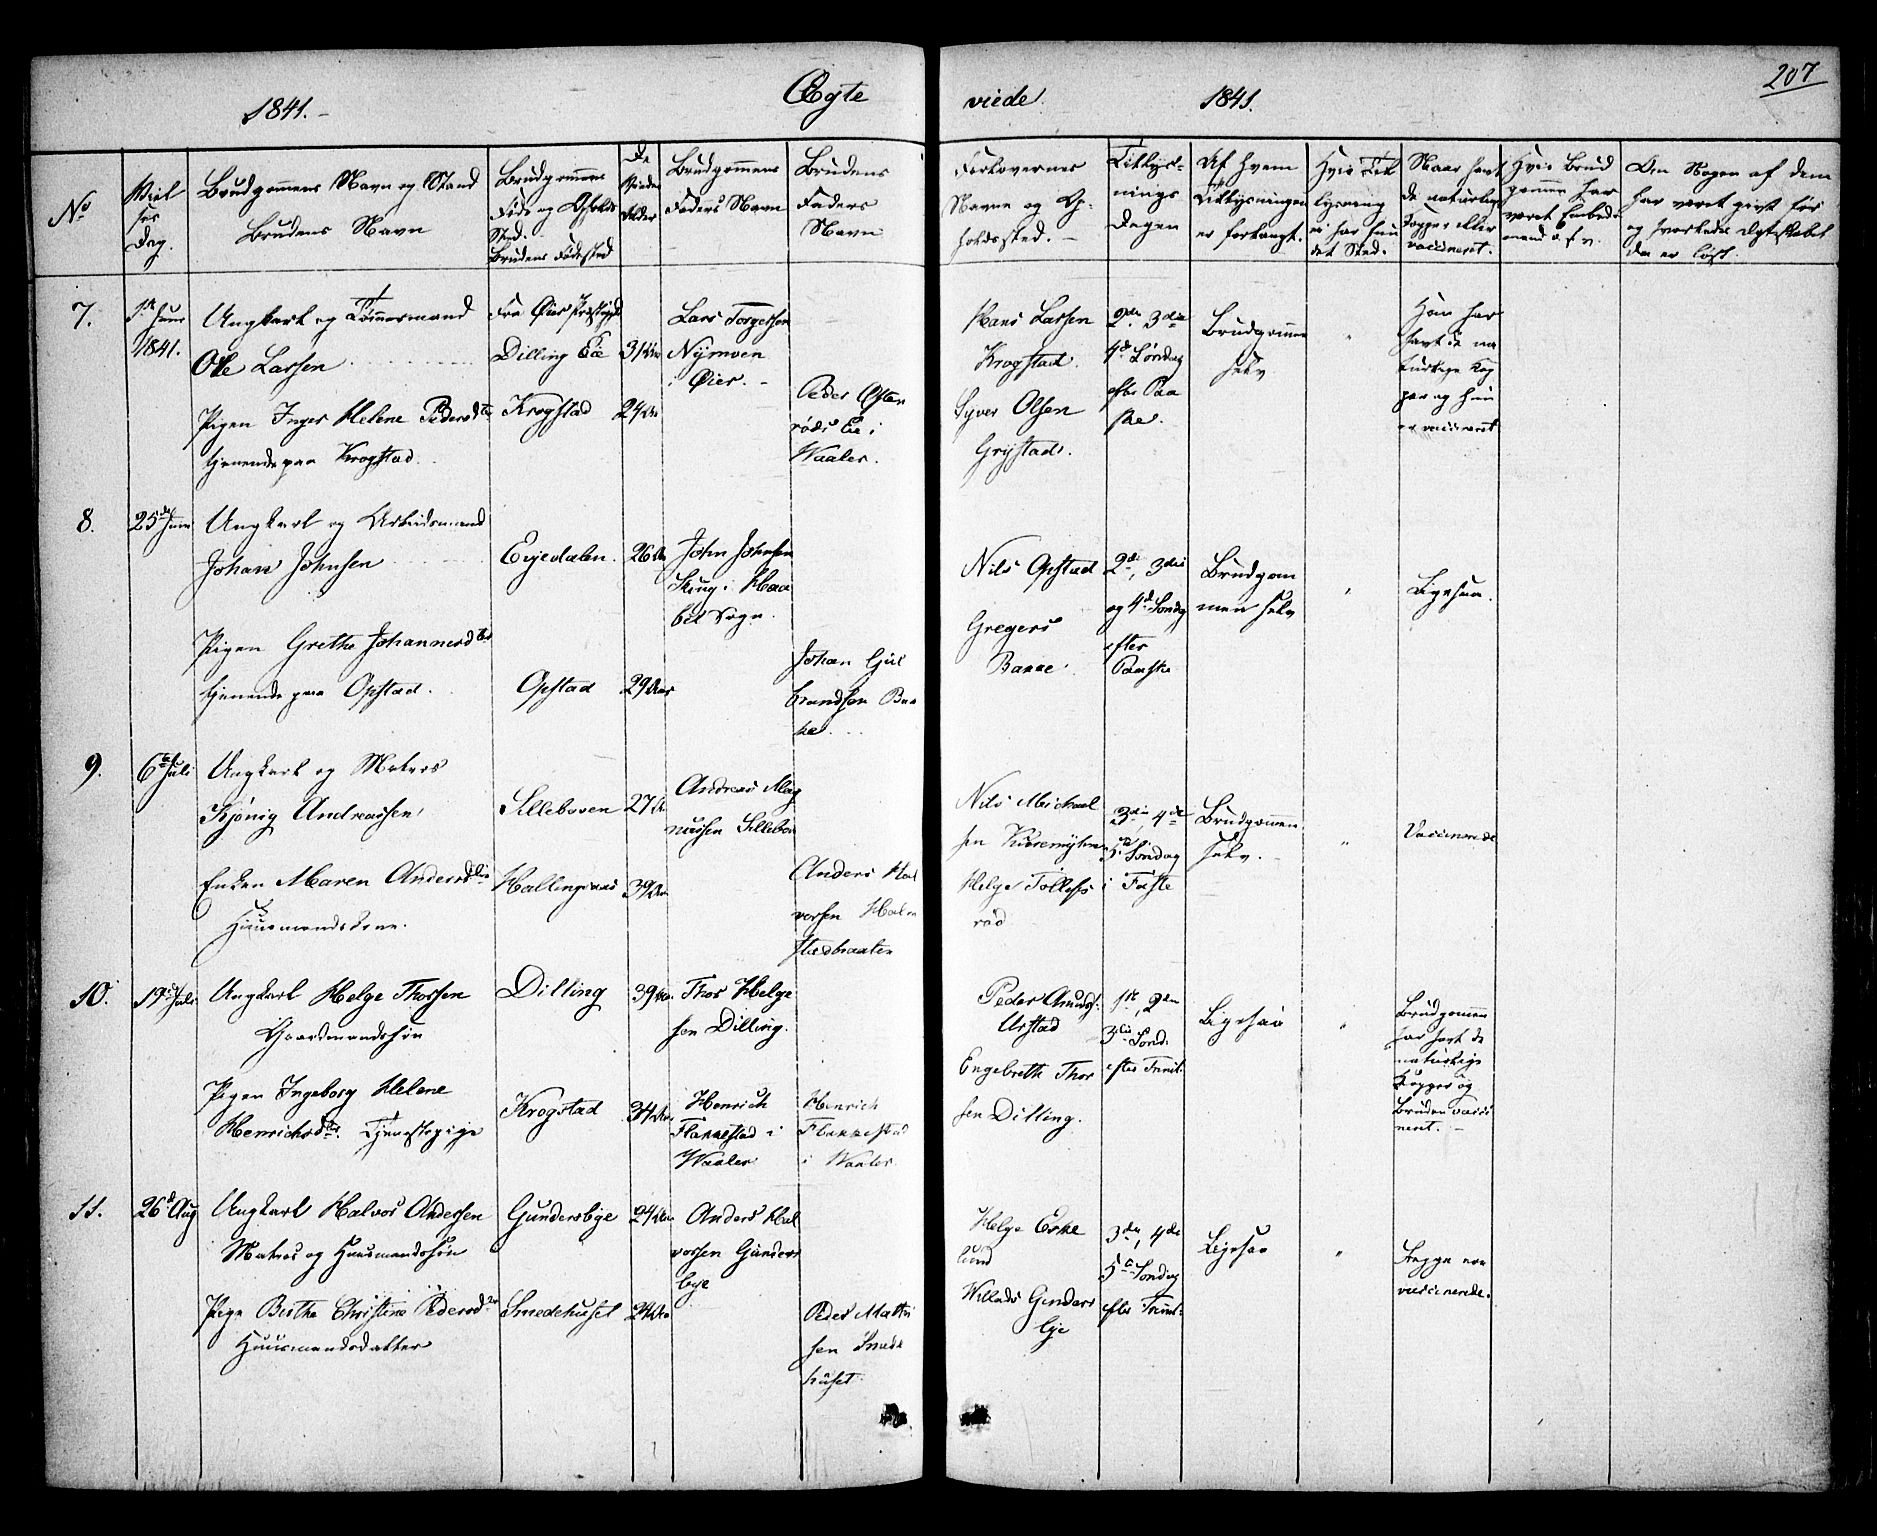 207
1841. Ægte viede. 1841.
No
Viel
ses
Dag.
Brudgommens Navn og Stand
Brudens Navn
Brudgommens
Føde og Opholds
Sted.
Brudens Fødested
De
Viedes
Alder
Brudgommens
Faders Navn
Brudens
Faders
Navn
Forlovernes
Navne og Op-
holdssted.
Tillys-
nings
Dagen
Af hvem
Tillysningen
er forlangt.
Hvis Til
lysning
ei har fun
det Sted.
Naar havt
de naturlige
Kopper eller
vaccineret.
Hvis Brud
gommen har
været Embeds
mand o.s.v.
Om Nogen af dem
har været givt før
og hvorledes Ægteskabet
da er løst.
7.
1ste Juni
1841.
Ungkarl og Tømmermand
Ole Larsen
Pigen Inger Helene Pedersd
tjenende paa Krogstad.
Fra Øier Præstegjd
Dilling Eie
Krogstad
31 Aar
24 Aar
Lars Torgersen
Nymoen
i Øier.
Peder Østen
røds Eie i
Waaler.
Hans Larsen
Krogstad.
Syver Olsen
Grystad.
2den 3die
4de Søndag
efter Paa
ske.
Brudgommen
selv
"
Han har
havt de na
turlige Kop
per og hun
er vaccineret
8.
25de Juni
Ungkarl og Arbeidsmand
Johan Johnsen
Pigen Grethe Johannesd
tjenende paa Opstad.
Evjedalen.
Opstad
26 Aar
29 Aar
John Johnsen
Skug i Haa
bel Sogn.
Johan Gul
brandsen Bak
ke.
Nils Opstad
Gregers
Bakke.
2de, 3die
og 4de Søndag
efter
Paaske
Brudgom
men selv
"
Ligesaa.
9.
6te Juli
Ungkarl og Matros
Kjønig Andreassen
Enken Maren Andersd
Huusmandskone.
Sillebøven
Hallingsaas
27 Aar
39 Aar
Andreas Mag
nussen Sillebøv
Anders Hal
vorsen
Nils Michael
sen
Helge Tollefs
rød
3die, 4de
5te Søndag
i Faste
Brudgommen
selv.
"
Vaccinerede
10.
19de Juli
Ungkarl Helge Thorsen
Gaardmandssøn
Pigen Ingeborg Helene
Henrichsd. Tjenestepige
Dilling
Krogstad
39 Aar
34 Aar
Thor Helge
sen Dilling.
Henrich
Flakkestad i
Waaler
Henrich
Flakkestad
i Waaler.
Peder Amunds.
Arstad
Engebreth Thor
sen Dilling.
1ste, 2den
3die Sønd.
efter Trinit.
Ligesaa
"
Brudgommen
har havt de
naturlige
Kopper og
Bruden vacci
neret.
11.
26de Aug
Ungkarl Halvor Andersen
Matros og Huusmandssøn
Pige Birthe Christine Pedersd
Huusmandsdatter
Gundersbye
Smedehuset
24 Aar
24 Aar
Anders Hal
vorsen Gunders
bye
Peder Mathi
sen Smede
huset.
Helge Eske
lund
Willads Gunders
bye
3die, 4de
5te Søndag
efter Trinit.
Ligesaa
"
Begge ere
vaccinerede.